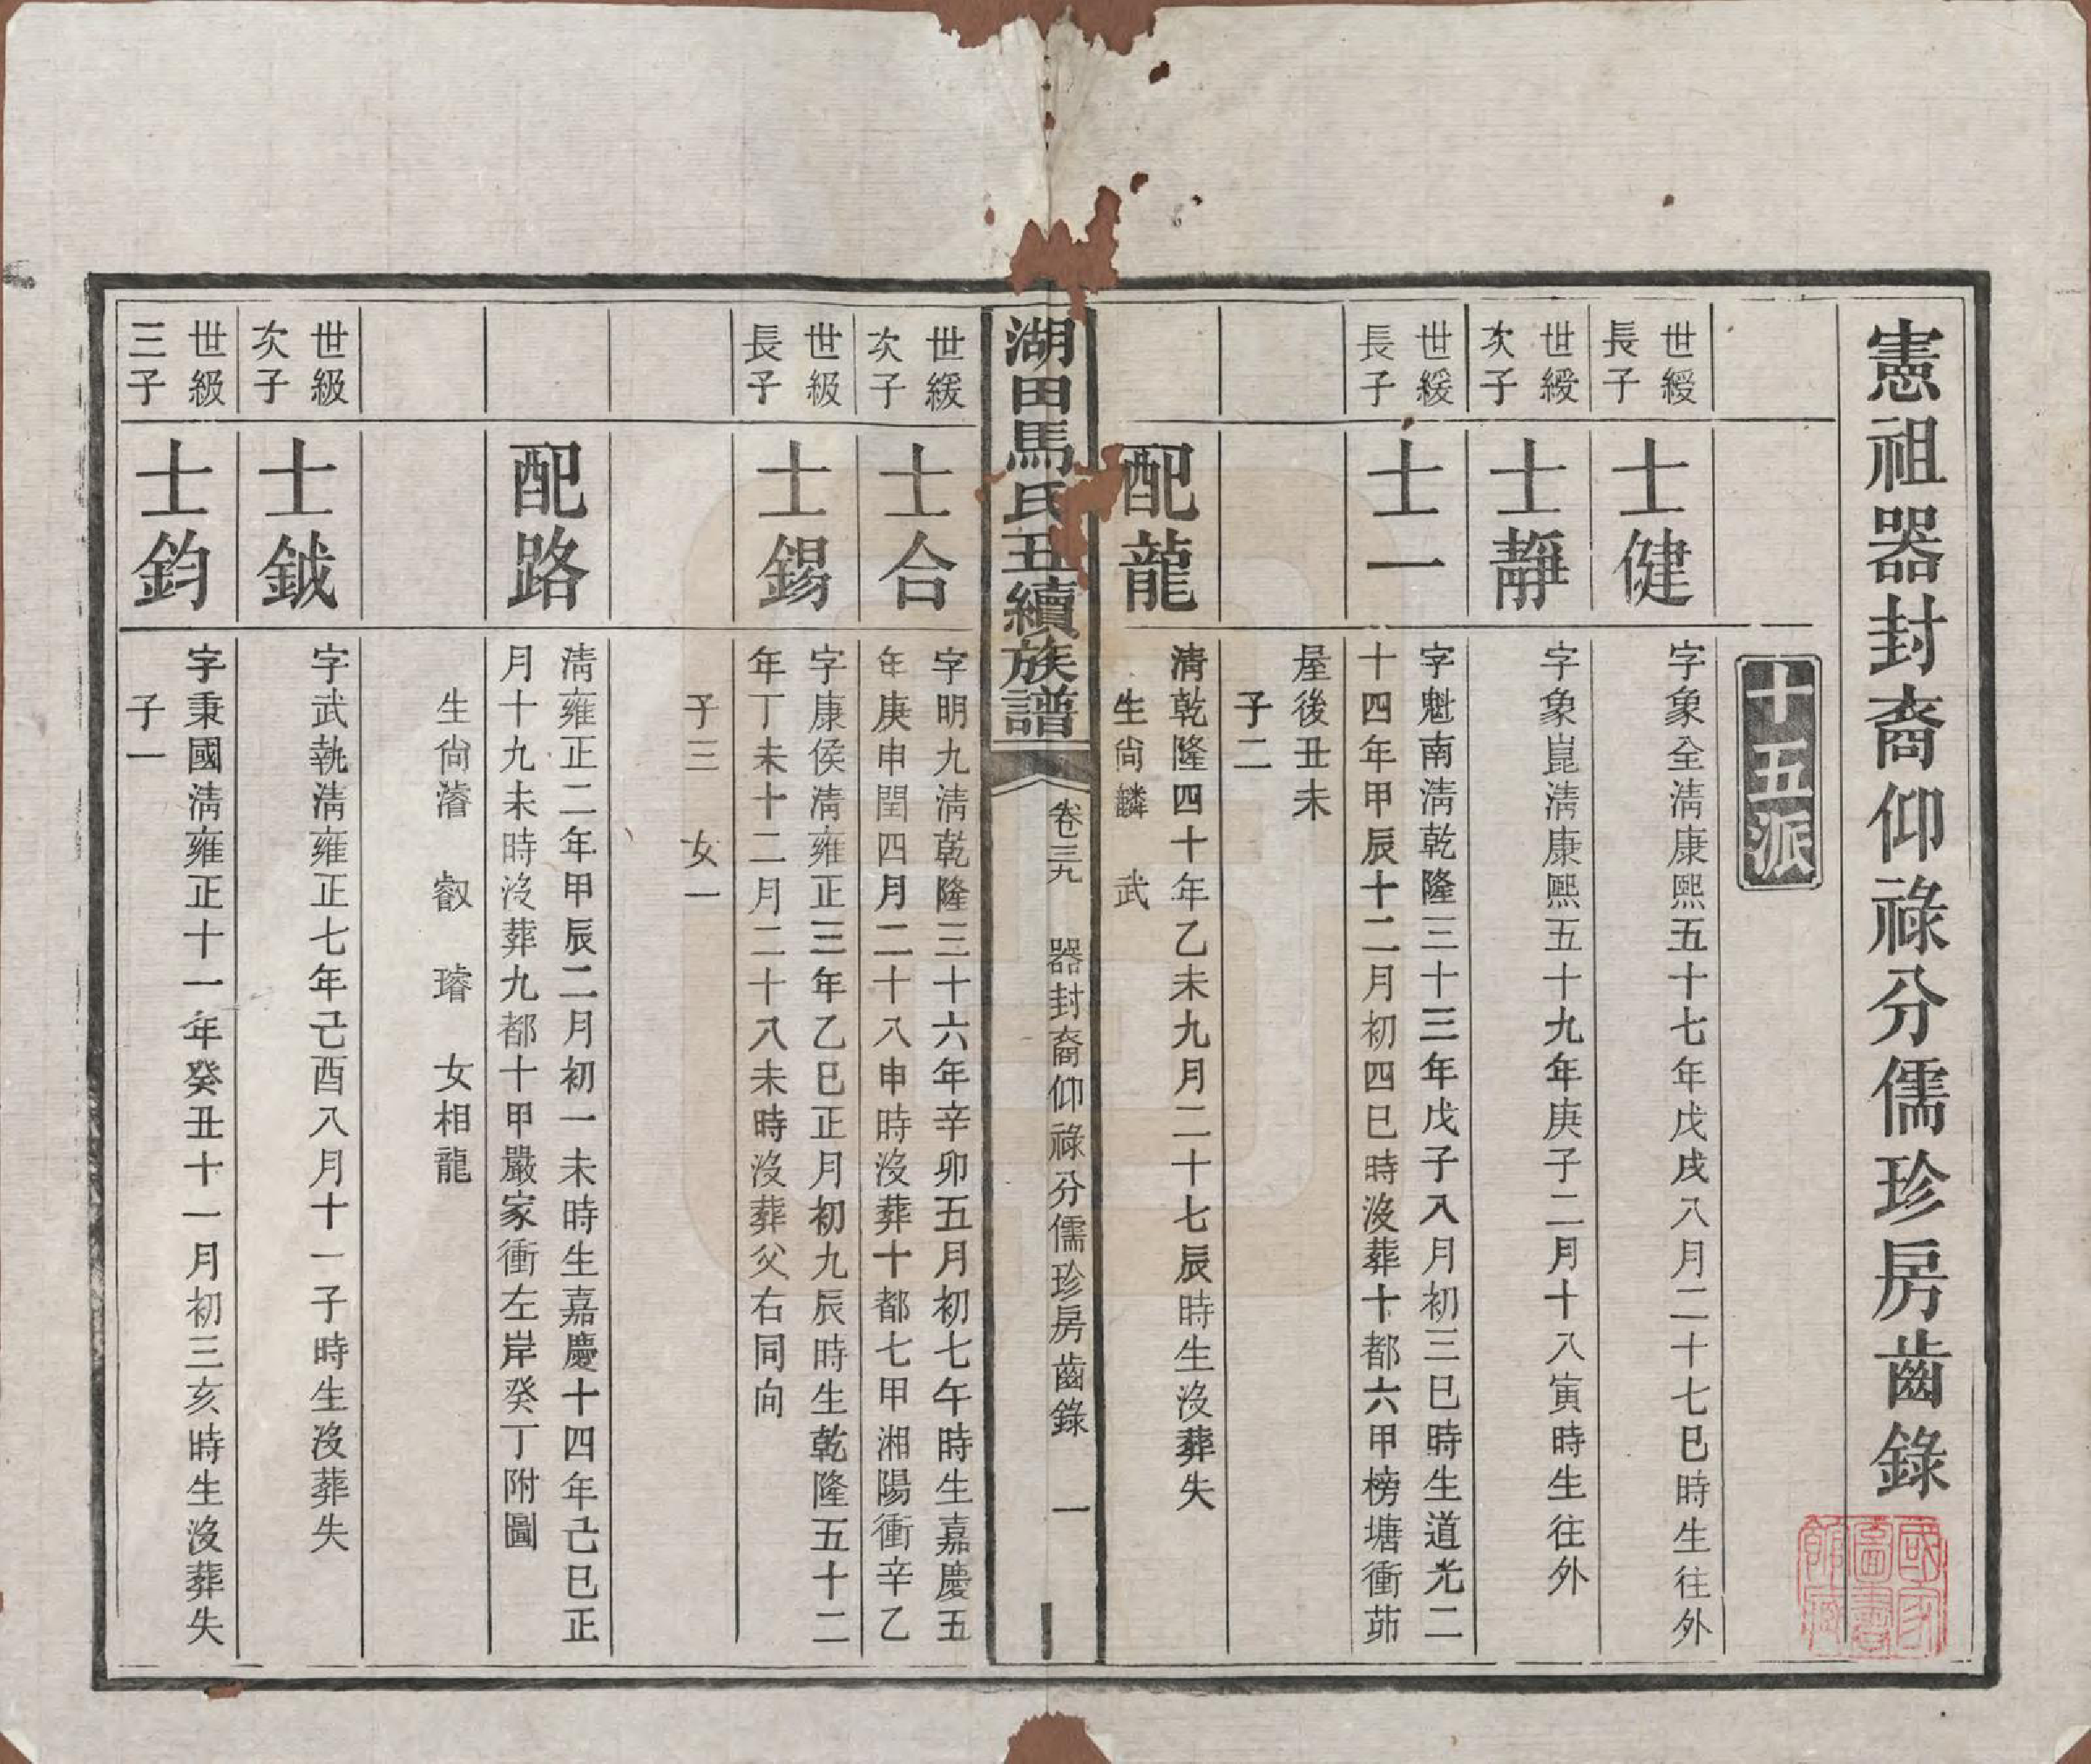 憲祖器封裔仰祿分儒珍房齒錄
十五派
世綬
長子
士健
字象全淸康熙五十七年戊戌八月二十七巳時生往外
世綬
次子
士靜
字象崑淸康熙五十九年庚子二月十八寅時生往外
世緩
長子
士一
字魁南淸乾隆三十三年戊子八月初三巳時生道光二
十四年甲辰十二月初四巳時沒葬十都六甲榜塘衝茆
屋後丑未
子二
配龍
淸乾隆四十年乙未九月二十七辰時生沒葬失
生尙麟 武
湖田馬氏五續族譜
卷三九
器封裔仰祿分儒珍房齒錄
一
世緩
次子
士合
字明九淸乾隆三十六年辛卯五月初七午時生嘉慶五
年庚申閏四月二十八申時沒葬十都七甲湘陽衝辛乙
世級
長子
士錫
字康侯淸雍正三年乙巳正月初九辰時生乾隆五十二
年丁未十二月二十八未時沒葬父右同向
子三 女一
配路
淸雍正二年甲辰二月初一未時生嘉慶十四年己巳正
月十九未時沒葬九都十甲嚴家衝左岸癸丁附圖
生尙濬 叡 璿 女相龍
世級
次子
士鉞
字武執淸雍正七年己酉八月十一子時生沒葬失
世級
三子
士鈞
字秉國淸雍正十一年癸丑十一月初三亥時生沒葬失
子一
國家
圖書
館藏